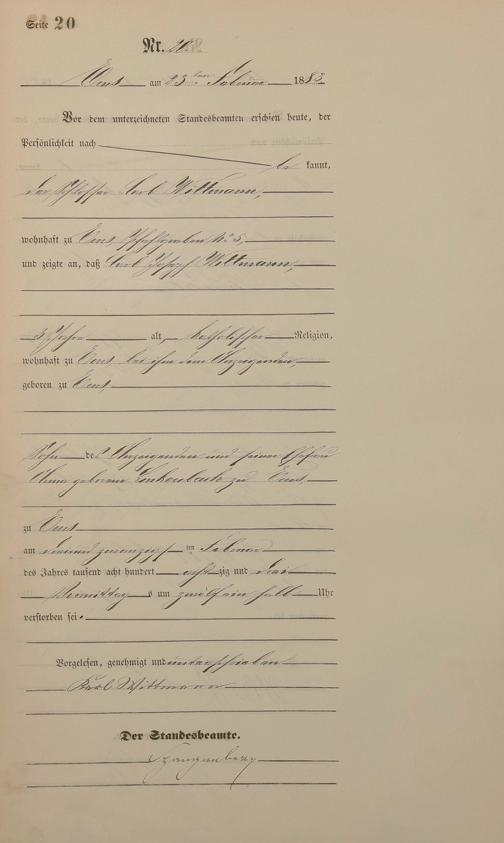 Seite 20
Nr. 20.
Ems am 23ten Februar 1883
Vor dem unterzeichneten Standesbeamten erschien heute, der
Persönlichkeit nach
be kannt,
der Schlosser Carl Wittmann,
wohnhaft zu Ems, No 5,
und zeigte an, daß Carl Joseph Wittmann,
3 Jahre alt, katholischer Religion,
wohnhaft zu Ems bei ihm dem Anzeigenden,
geboren zu Ems
Sohn des Anzeigenden und seiner Ehefrau
Anna geborene Linkenbach zu Ems
zu Ems
am dreiundzwanzigsten Februar
des Jahres tausend acht hundert achtzig und drei
Vormittags um zwölf ein halb Uhr
verstorben sei.
Vorgelesen, genehmigt und unterschrieben
Karl Wittmann
Der Standesbeamte.
Spangenberg